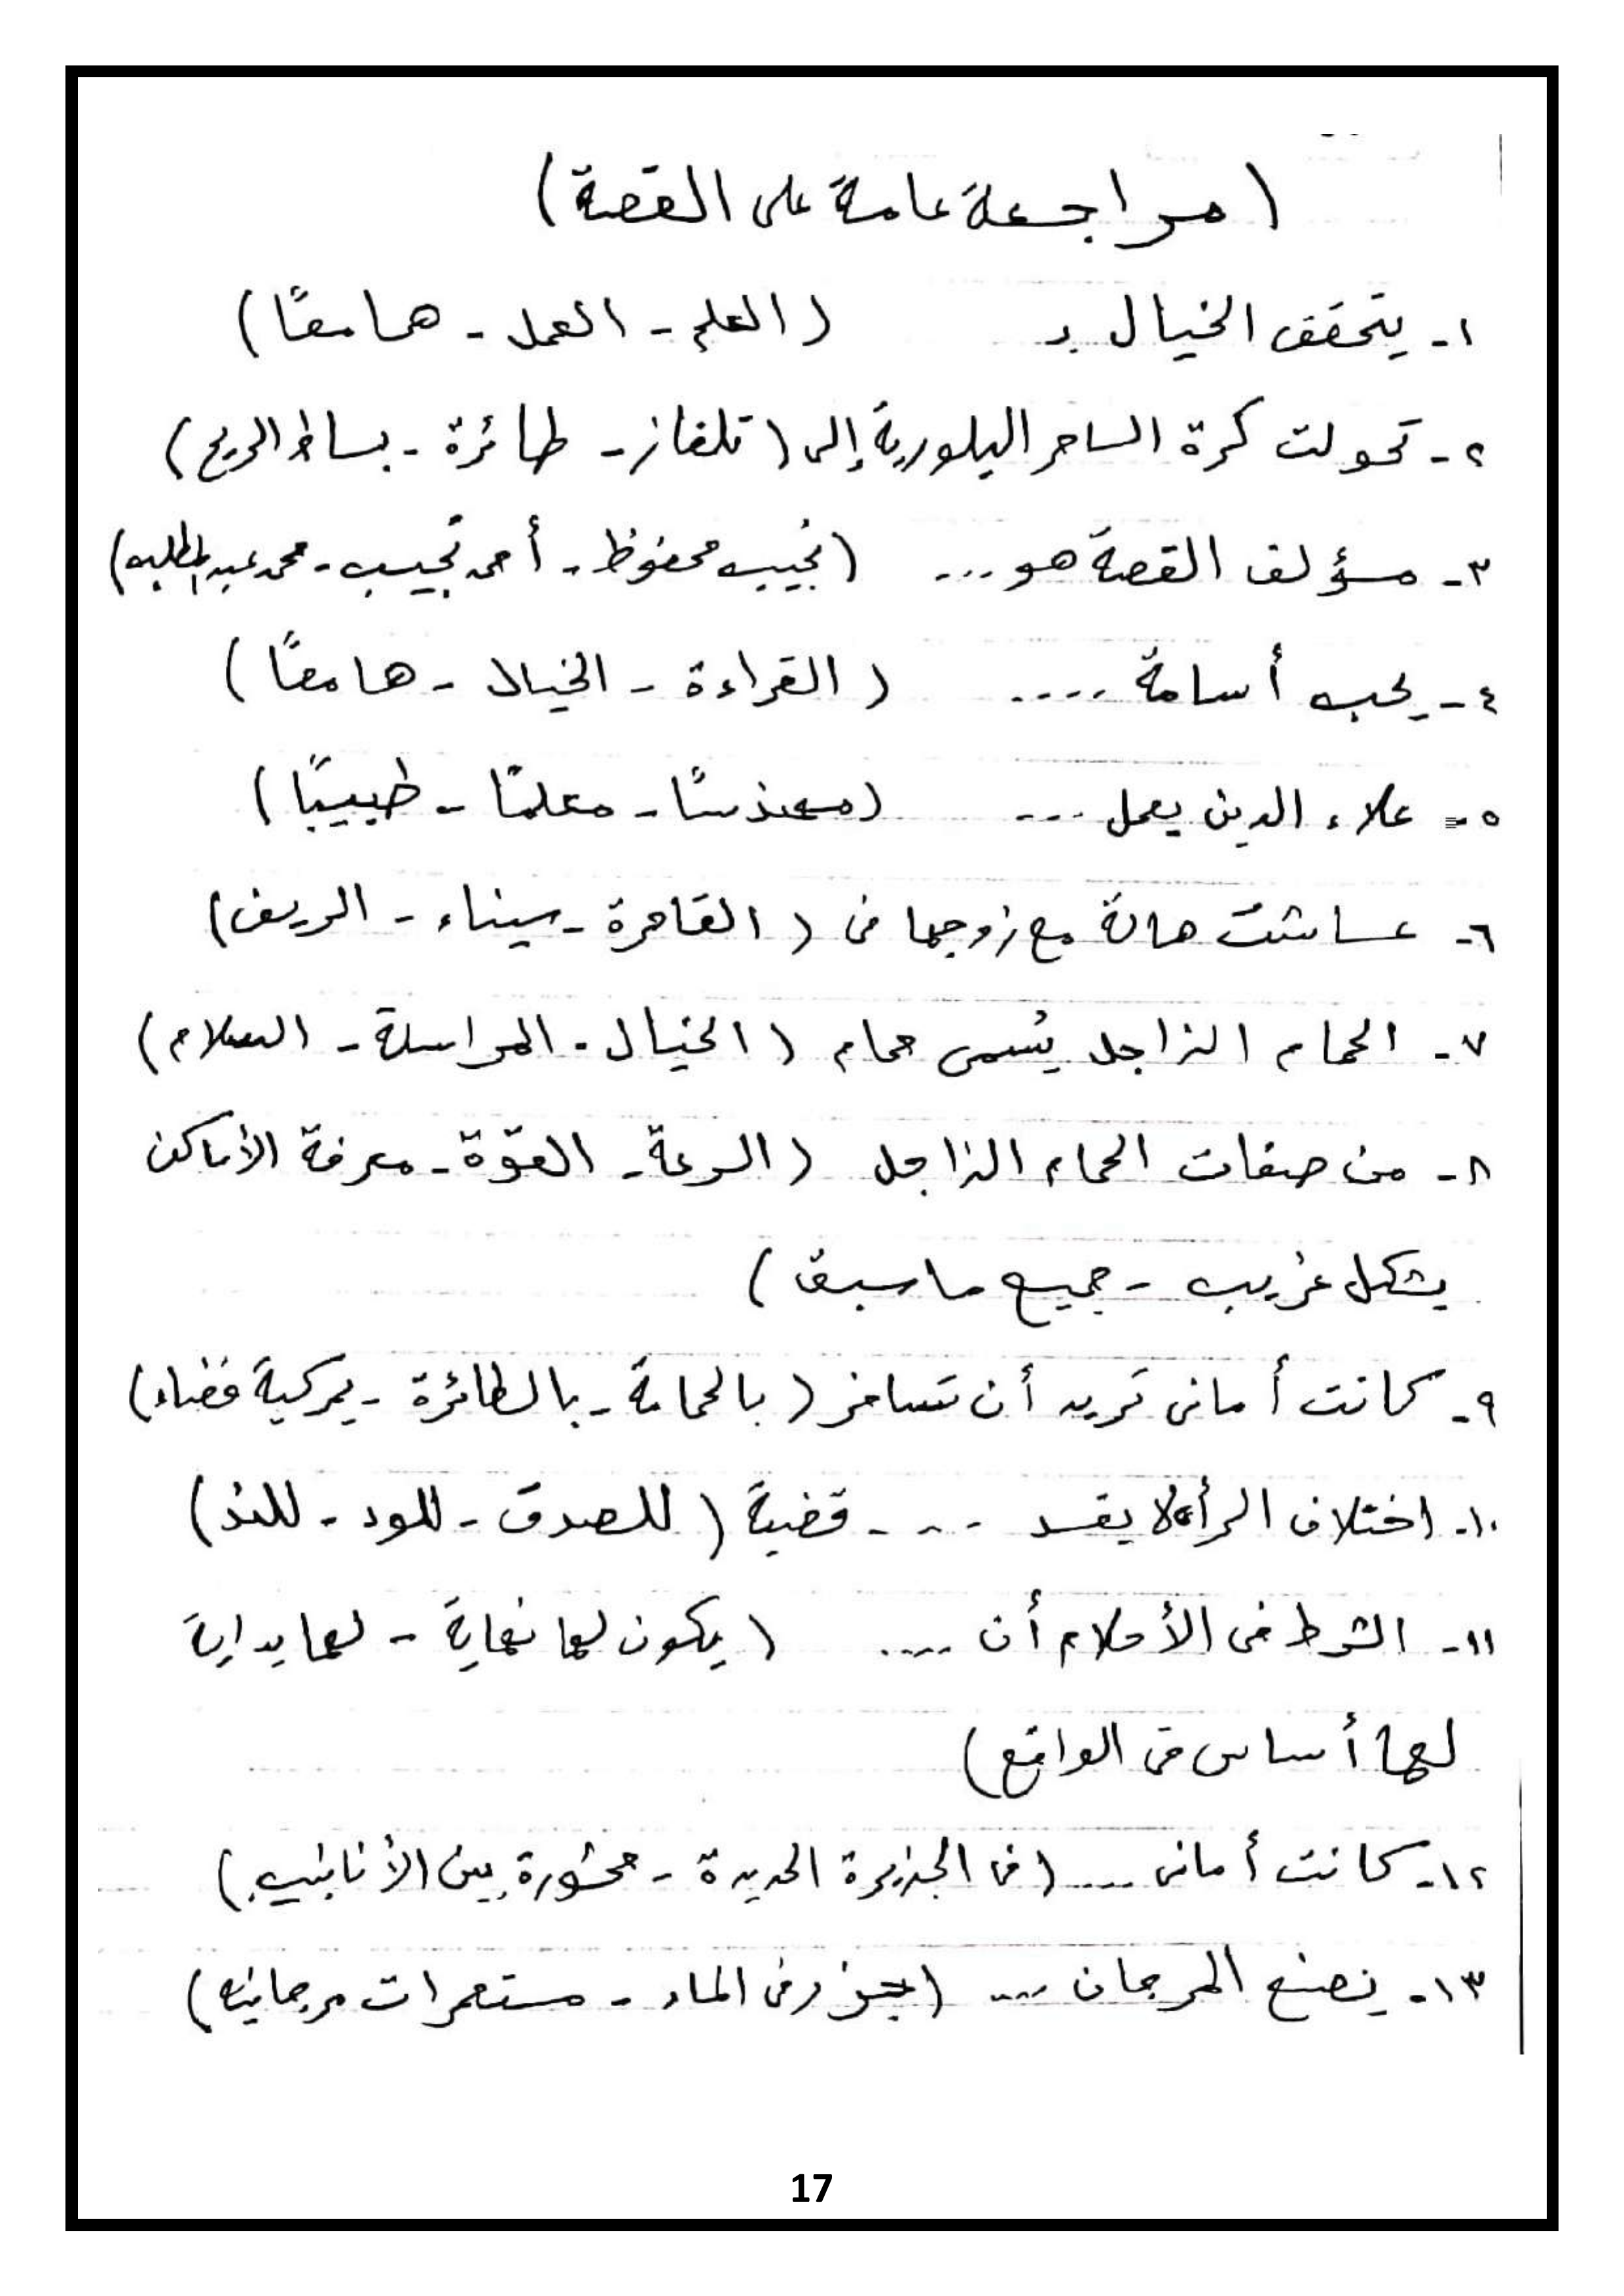 (مراجعة عامة على القصة)
١- يتحقق الخيال بـ (العلم - العمل - هما معًا)
٢- تحولت كرة الساحر البلورية إلى (تلفاز - طائرة - بساط الريح)
٣- مؤلف القصة هو ... (نجيب محفوظ - أحمد نجيب - محمد عبد المطلب)
٤- يحب أسامة .... (القراءة - الخيال - هما معًا)
٥- علاء الدين يعمل ... (مهندسًا - معلمًا - طبيبًا)
٦- عاشت هالة مع زوجها فى (القاهرة - سيناء - الريف)
٧- الحمام الزاجل يُسمى حمام (الخيال - المراسلة - السلام)
٨- من صفات الحمام الزاجل (السرعة - القوّة - معرفة الأماكن
بشكل غريب - جميع ما سبق)
٩- كانت أمانى تريد أن تسافر (بالحمامة - بالطائرة - بمركبة فضاء)
١٠- اختلاف الرأى لا يفسد ... قضية (للصدق - للود - للند)
١١- الشرط فى الأحلام أن .... (يكون لها نهاية - لها بداية
لها أساس فى الواقع)
١٢- كانت أمانى .... (فى الجزيرة الجديدة - محشورة بين الأنابيب)
١٣- يصنع المرجان ... (جذور فى الماء - مستعمرات مرجانية)
17